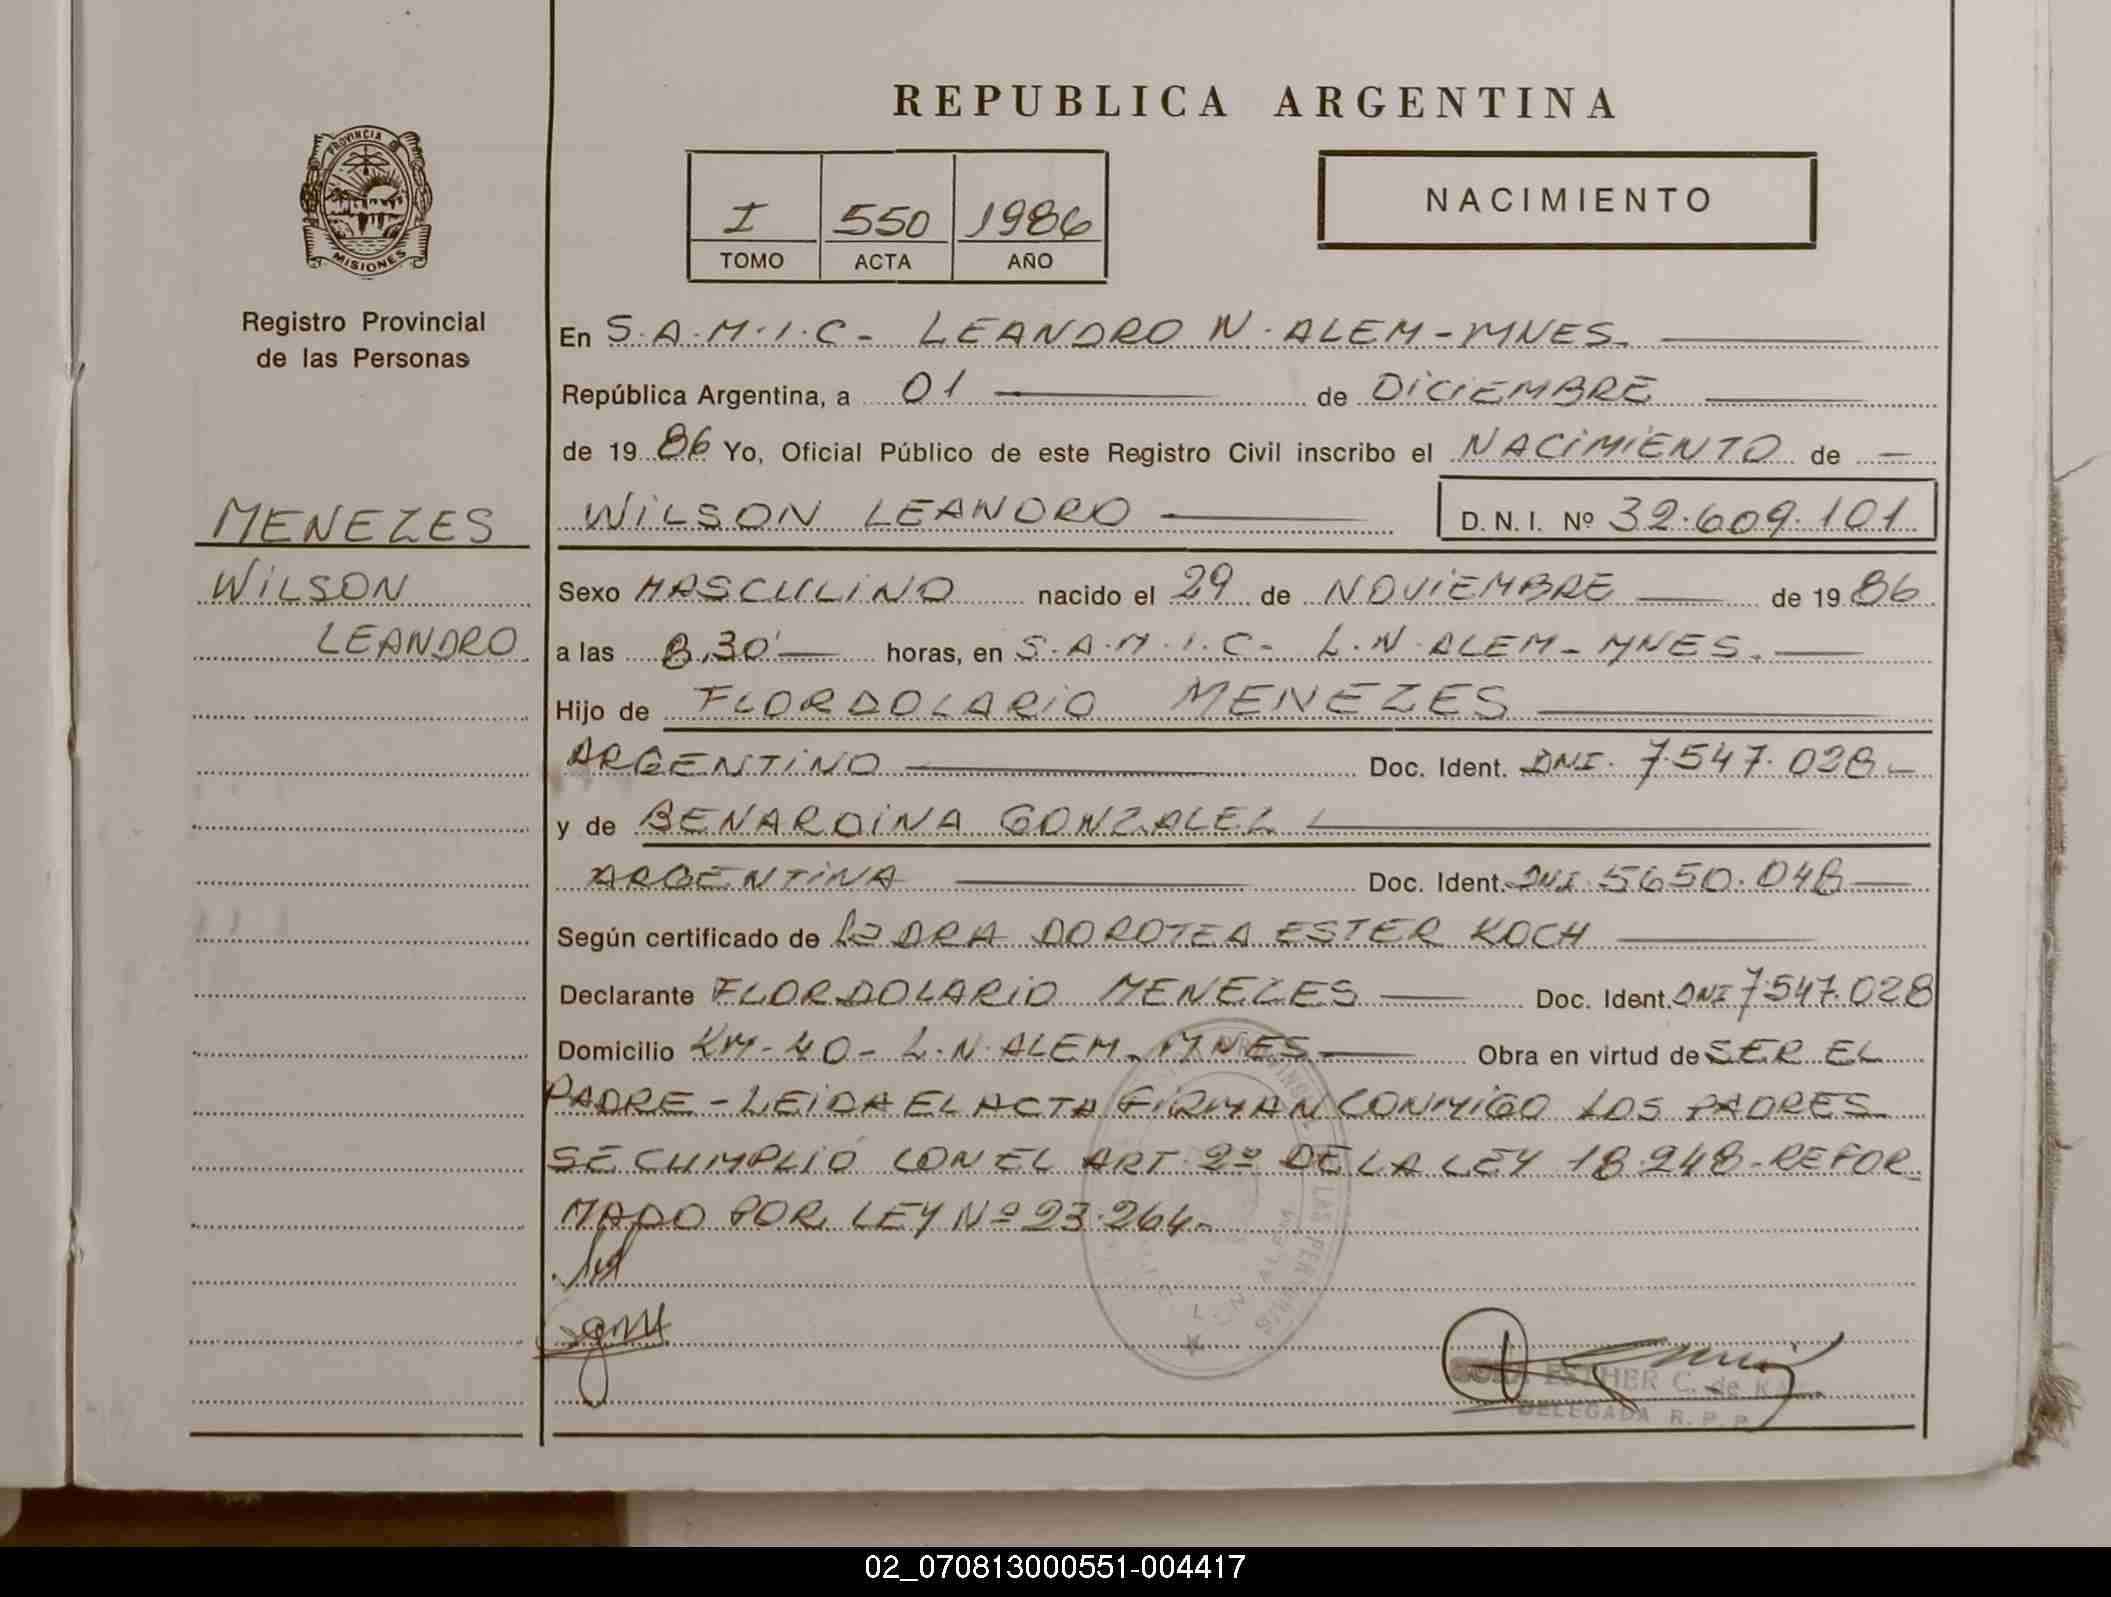 REPUBLICA ARGENTINA
PROVINCIA DE
MISIONES
Registro Provincial
de las Personas
I 550 1986
TOMO ACTA AÑO
NACIMIENTO
En S.A.M.I.C- LEANDRO N. ALEM-MNES.
República Argentina, a 01 de DICIEMBRE
de 1986 Yo, Oficial Público de este Registro Civil inscribo el NACIMIENTO de
MENEZES
WILSON LEANDRO D. N. I. Nº 32.609.101
WILSON
LEANDRO
Sexo MASCULINO nacido el 29 de NOVIEMBRE de 1986
a las 8,30' horas, en S.A.M.I.C- L.N.ALEM-MNES.
Hijo de FLORDOLARIO MENEZES
ARGENTINO Doc. Ident. DNI. 7.547.028-
y de BENARDINA GONZALEZ
ARGENTINA Doc. Ident. DNI 5650.048
Según certificado de LA DRA DOROTEA ESTER KOCH
Declarante FLORDOLARIO MENEZES Doc. Ident. DNI 7.547.028
Domicilio KM-40- L.N.ALEM-MNES Obra en virtud de SER EL
PADRE-LEIDA EL ACTA FIRMAN CONMIGO LOS PADRES
SE CUMPLIO CON EL ART. 2º DE LA LEY 18.248-REFOR
MADO POR LEY Nº 23.264-
ESTHER C. de
DELEGADA R. P. P.
02_070813000551-004417